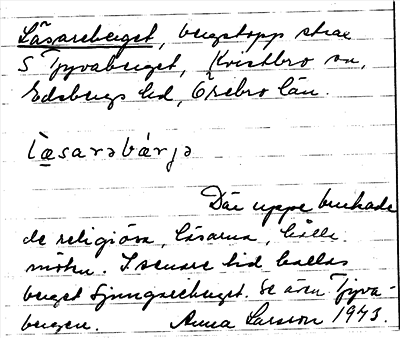 Läsareberget, bergstopp strax
S Tjyvaberget, Kvistbro sn,
Edsbergs hd, Örebro län.
l̀æsarabárja
Där uppe brukade
de religiösa, läsarna, hålla
möten. I senare tid kallas
berget Sjungareberget. Se även Tjyva-
bergen. Anna Larsson 1943.